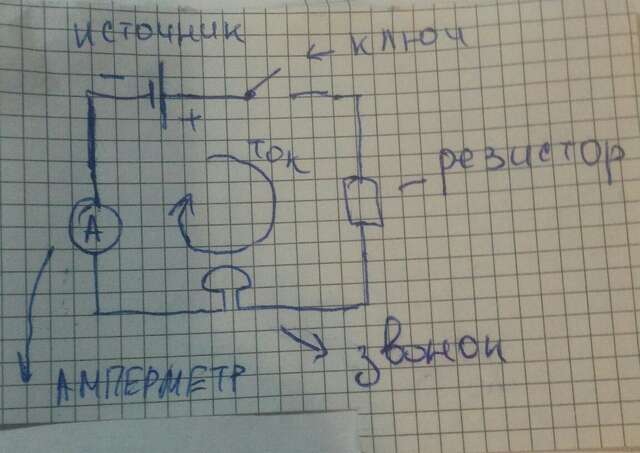 источник
ключ
−
+
ток
резистор
А
звонок
АМПЕРМЕТР